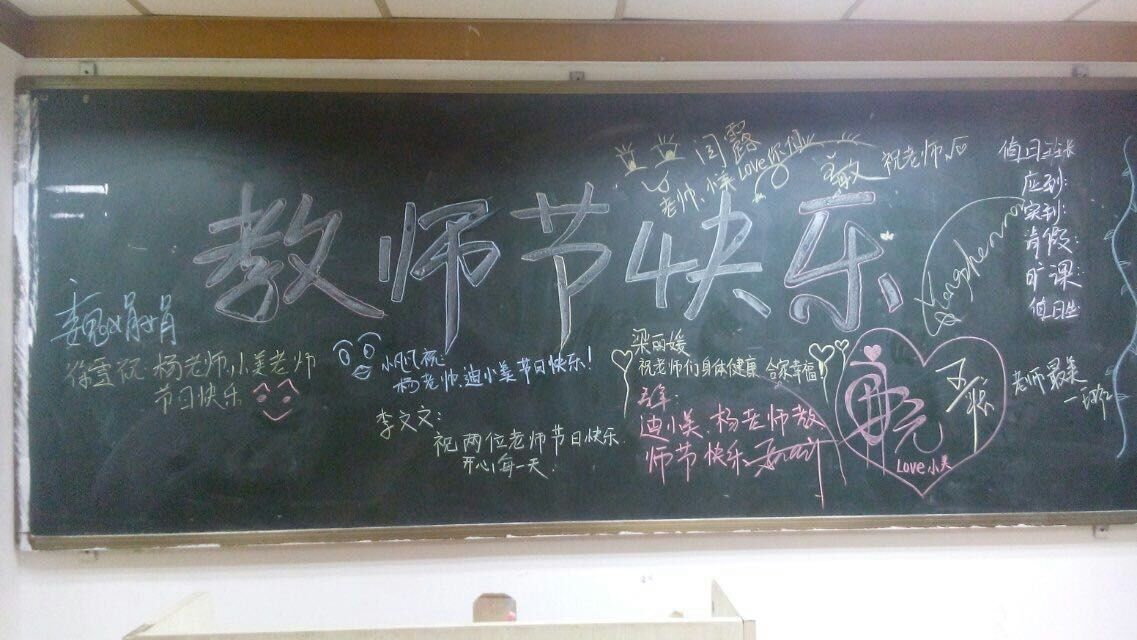 闫露
老师、小美 Love 你们
敏
祝老师、
教师节快乐
值日班长
应到：
实到：
肖假：
旷课：
值日生
魏娟娟
徐雪祝：杨老师，小美老师
节日快乐
小凡祝：
杨老师.迪小美节日快乐！
李文文：
祝两位老师节日快乐
开心每一天.
梁丽媛
祝老师们身体健康 合家幸福！
迪小美、杨老师教
师节快乐
Love 小美
老师最美